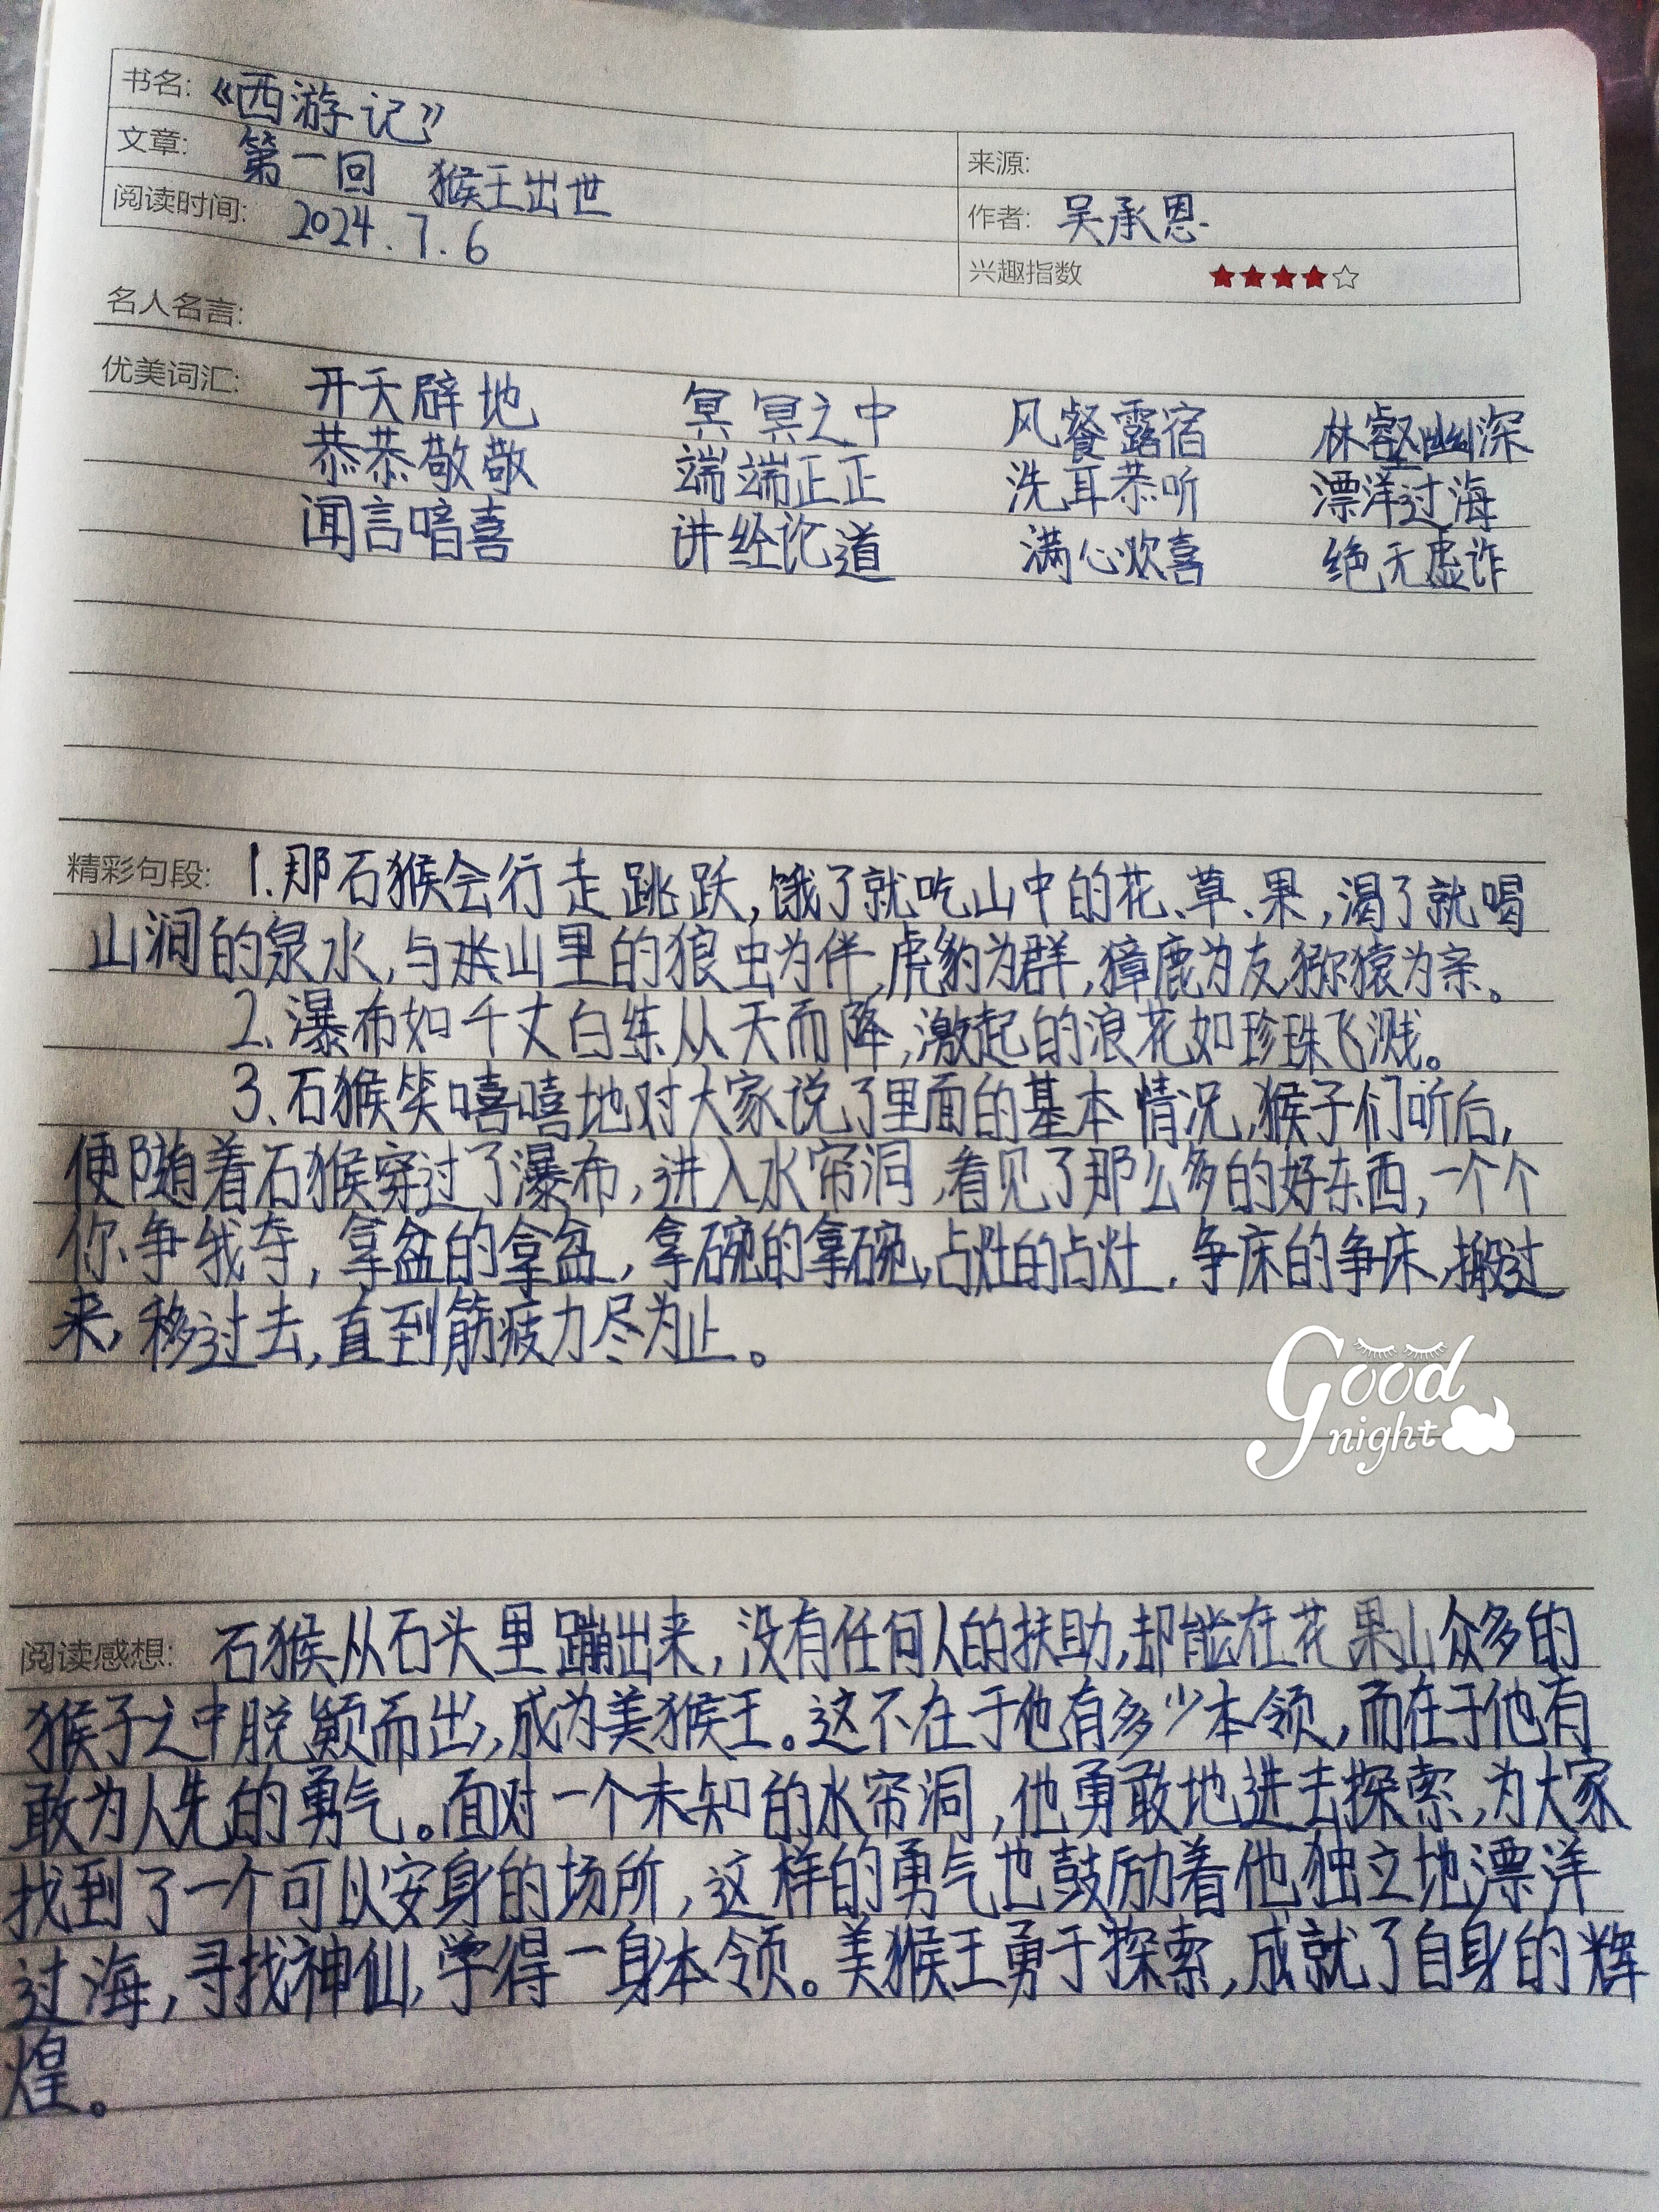 书名: 《西游记》
文章: 第一回 猴王出世 来源:
阅读时间: 2024.7.6 作者: 吴承恩
兴趣指数 ★★★★☆
名人名言:
优美词汇: 开天辟地 冥冥之中 风餐露宿 林壑幽深
恭恭敬敬 端端正正 洗耳恭听 漂洋过海
闻言暗喜 讲经论道 满心欢喜 绝无虚诈
精彩句段: 1.那石猴会行走跳跃,饿了就吃山中的花、草、果,渴了就喝
山涧的泉水,与山里的狼虫为伴,虎豹为群,獐鹿为友,猕猿为亲。
2.瀑布如千丈白练从天而降,激起的浪花如珍珠飞溅。
3、石猴笑嘻嘻地对大家说了里面的基本情况,猴子们听后,
便随着石猴穿过了瀑布,进入水帘洞,看见了那么多的好东西,一个个
你争我夺,拿盆的拿盆,拿碗的拿碗,占灶的占灶,争床的争床,搬过
来,移过去,直到筋疲力尽为止。
Good
night
阅读感想: 石猴从石头里蹦出来,没有任何人的扶助,却能在花果山众多的
猴子之中脱颖而出,成为美猴王。这不在于他有多少本领,而在于他有
敢为人先的勇气。面对一个未知的水帘洞,他勇敢地进去探索,为大家
找到了一个可以安身的场所,这样的勇气也鼓励着他独立地漂洋
过海,寻找神仙,学得一身本领。美猴王勇于探索,成就了自身的辉
煌。